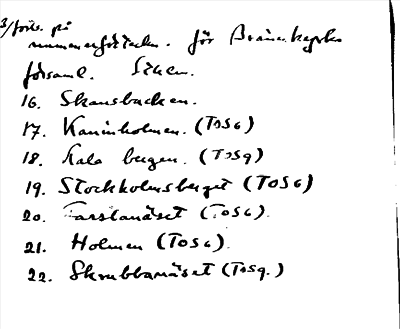 3/förts. på
för Brännkyrka
församl. Sthlm.
16. Skansbacken.
17. Kaninholmen. (TOSG)
18. Kala bergen. (TOSg)
19. Stockholmsberget (TOSG)
20. Farstanäset (TOSG).
21. Holmen (TOSG).
22. Skrubbanäset (TOSg.)